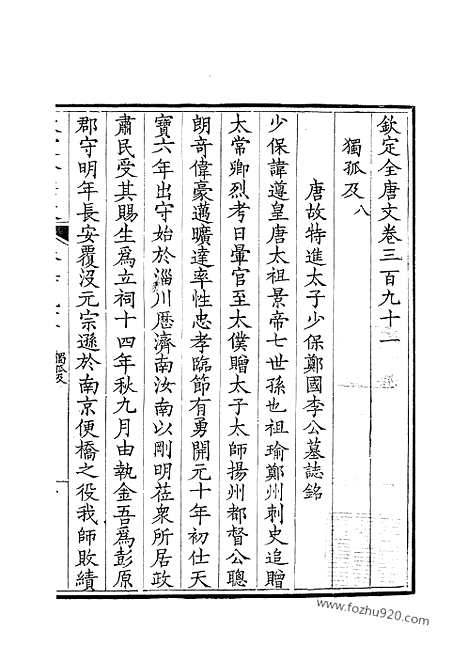 欽定全唐文卷三百九十二
獨孤及八
唐故特進太子少保鄭國李公墓誌銘
少保諱遵皇唐太祖景帝七世孫也祖瑜鄭州刺史追贈
太常卿烈考日暈官至太僕贈太子太師揚州都督公聰
朗奇偉豪邁曠達率性忠孝臨節有勇開元十年初仕天
寶六年出守始於淄川歷濟南汝南以剛明莅衆所居政
肅民受其賜生爲立祠十四年秋九月由執金吾爲彭原
郡守明年長安覆沒元宗遜於南京便橋之役我師敗績
獨孤及
www.fozhu920.com